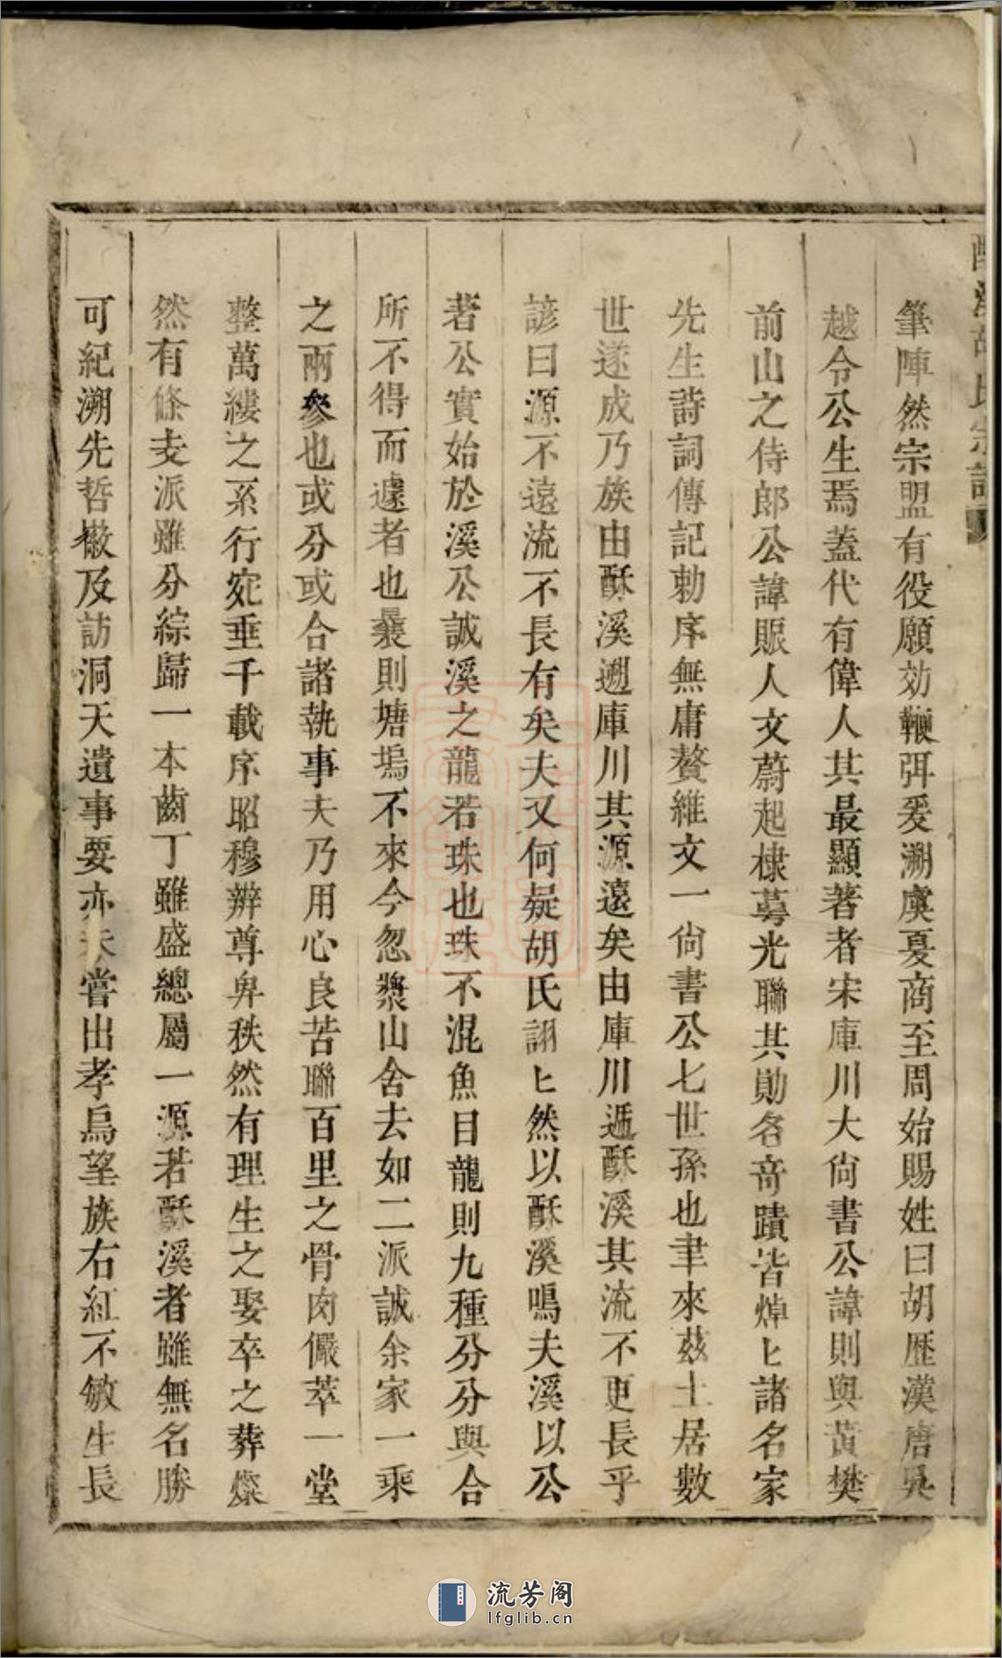 酥溪胡氏宗譜
筆陣然宗盟有役願効鞭弭爰溯虞夏商至周始賜姓曰胡歷漢唐吳
越令公生焉蓋代有偉人其最顯著者宋庫川大尙書公諱則與黃樊
前山之侍郎公諱賑人文蔚起棣萼光聯其勛名竒蹟皆焯〻諸名家
先生詩詞傳記勅序無庸贅維文一尙書公七世孫也聿來茲土居數
世遂成乃族由酥溪遡庫川其源遠矣由庫川遞酥溪其流不更長乎
諺曰源不遠流不長有矣夫又何疑胡氏詡〻然以酥溪鳴夫溪以公
著公實始於溪公誠溪之龍若珠也珠不混魚目龍則九種分分與合
所不得而遽者也曩則塘塢不來今忽漿山舍去如二派誠余家一乘
之兩參也或分或合諸執事夫乃用心良苦聯百里之骨肉儼萃一堂
整萬縷之糸行宛垂千載序昭穆辨尊卑秩然有理生之娶卒之葬燦
然有條支派雖分綜歸一本齒丁雖盛總屬一源若酥溪者雖無名勝
可紀溯先哲檄及訪洞天遺事要亦未嘗出孝烏望族右紅不敏生長
流芳阁
lfglib.cn